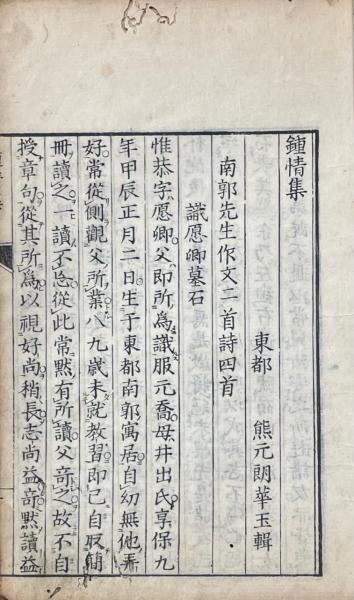 鍾情集
東都　熊元朗華玉輯
南郭先生作文二首詩四首
識愿卿墓石
惟恭字愿卿父即所為識服元喬母井出氏享保九
年甲辰正月二日生于東都南郭寓居自幼無他弄
好常從側觀父所業八九歲未就教習即已自取簡
冊讀之一讀不忘從此常默有所讀父奇之故不自
授章句從其所為以視好尚稍長志尚益奇默讀益